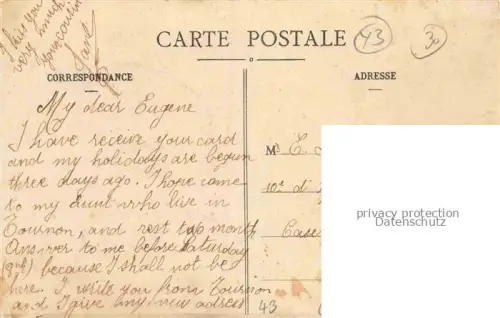 I kiss you
very much
your cousin
CARTE POSTALE
43
30
CORRESPONDANCE
ADRESSE
My dear Eugene
I have receive your card
and my holidays are begun
three days ago. I hope come
to my aunt who live in
Tournon, and rest top month
Answer to me before Saturday
(3rd) because I shall not be
here. I write you from Tournon
and I give my new adress
Mr E.
10e d'
Case
43
privacy protection
Datenschutz